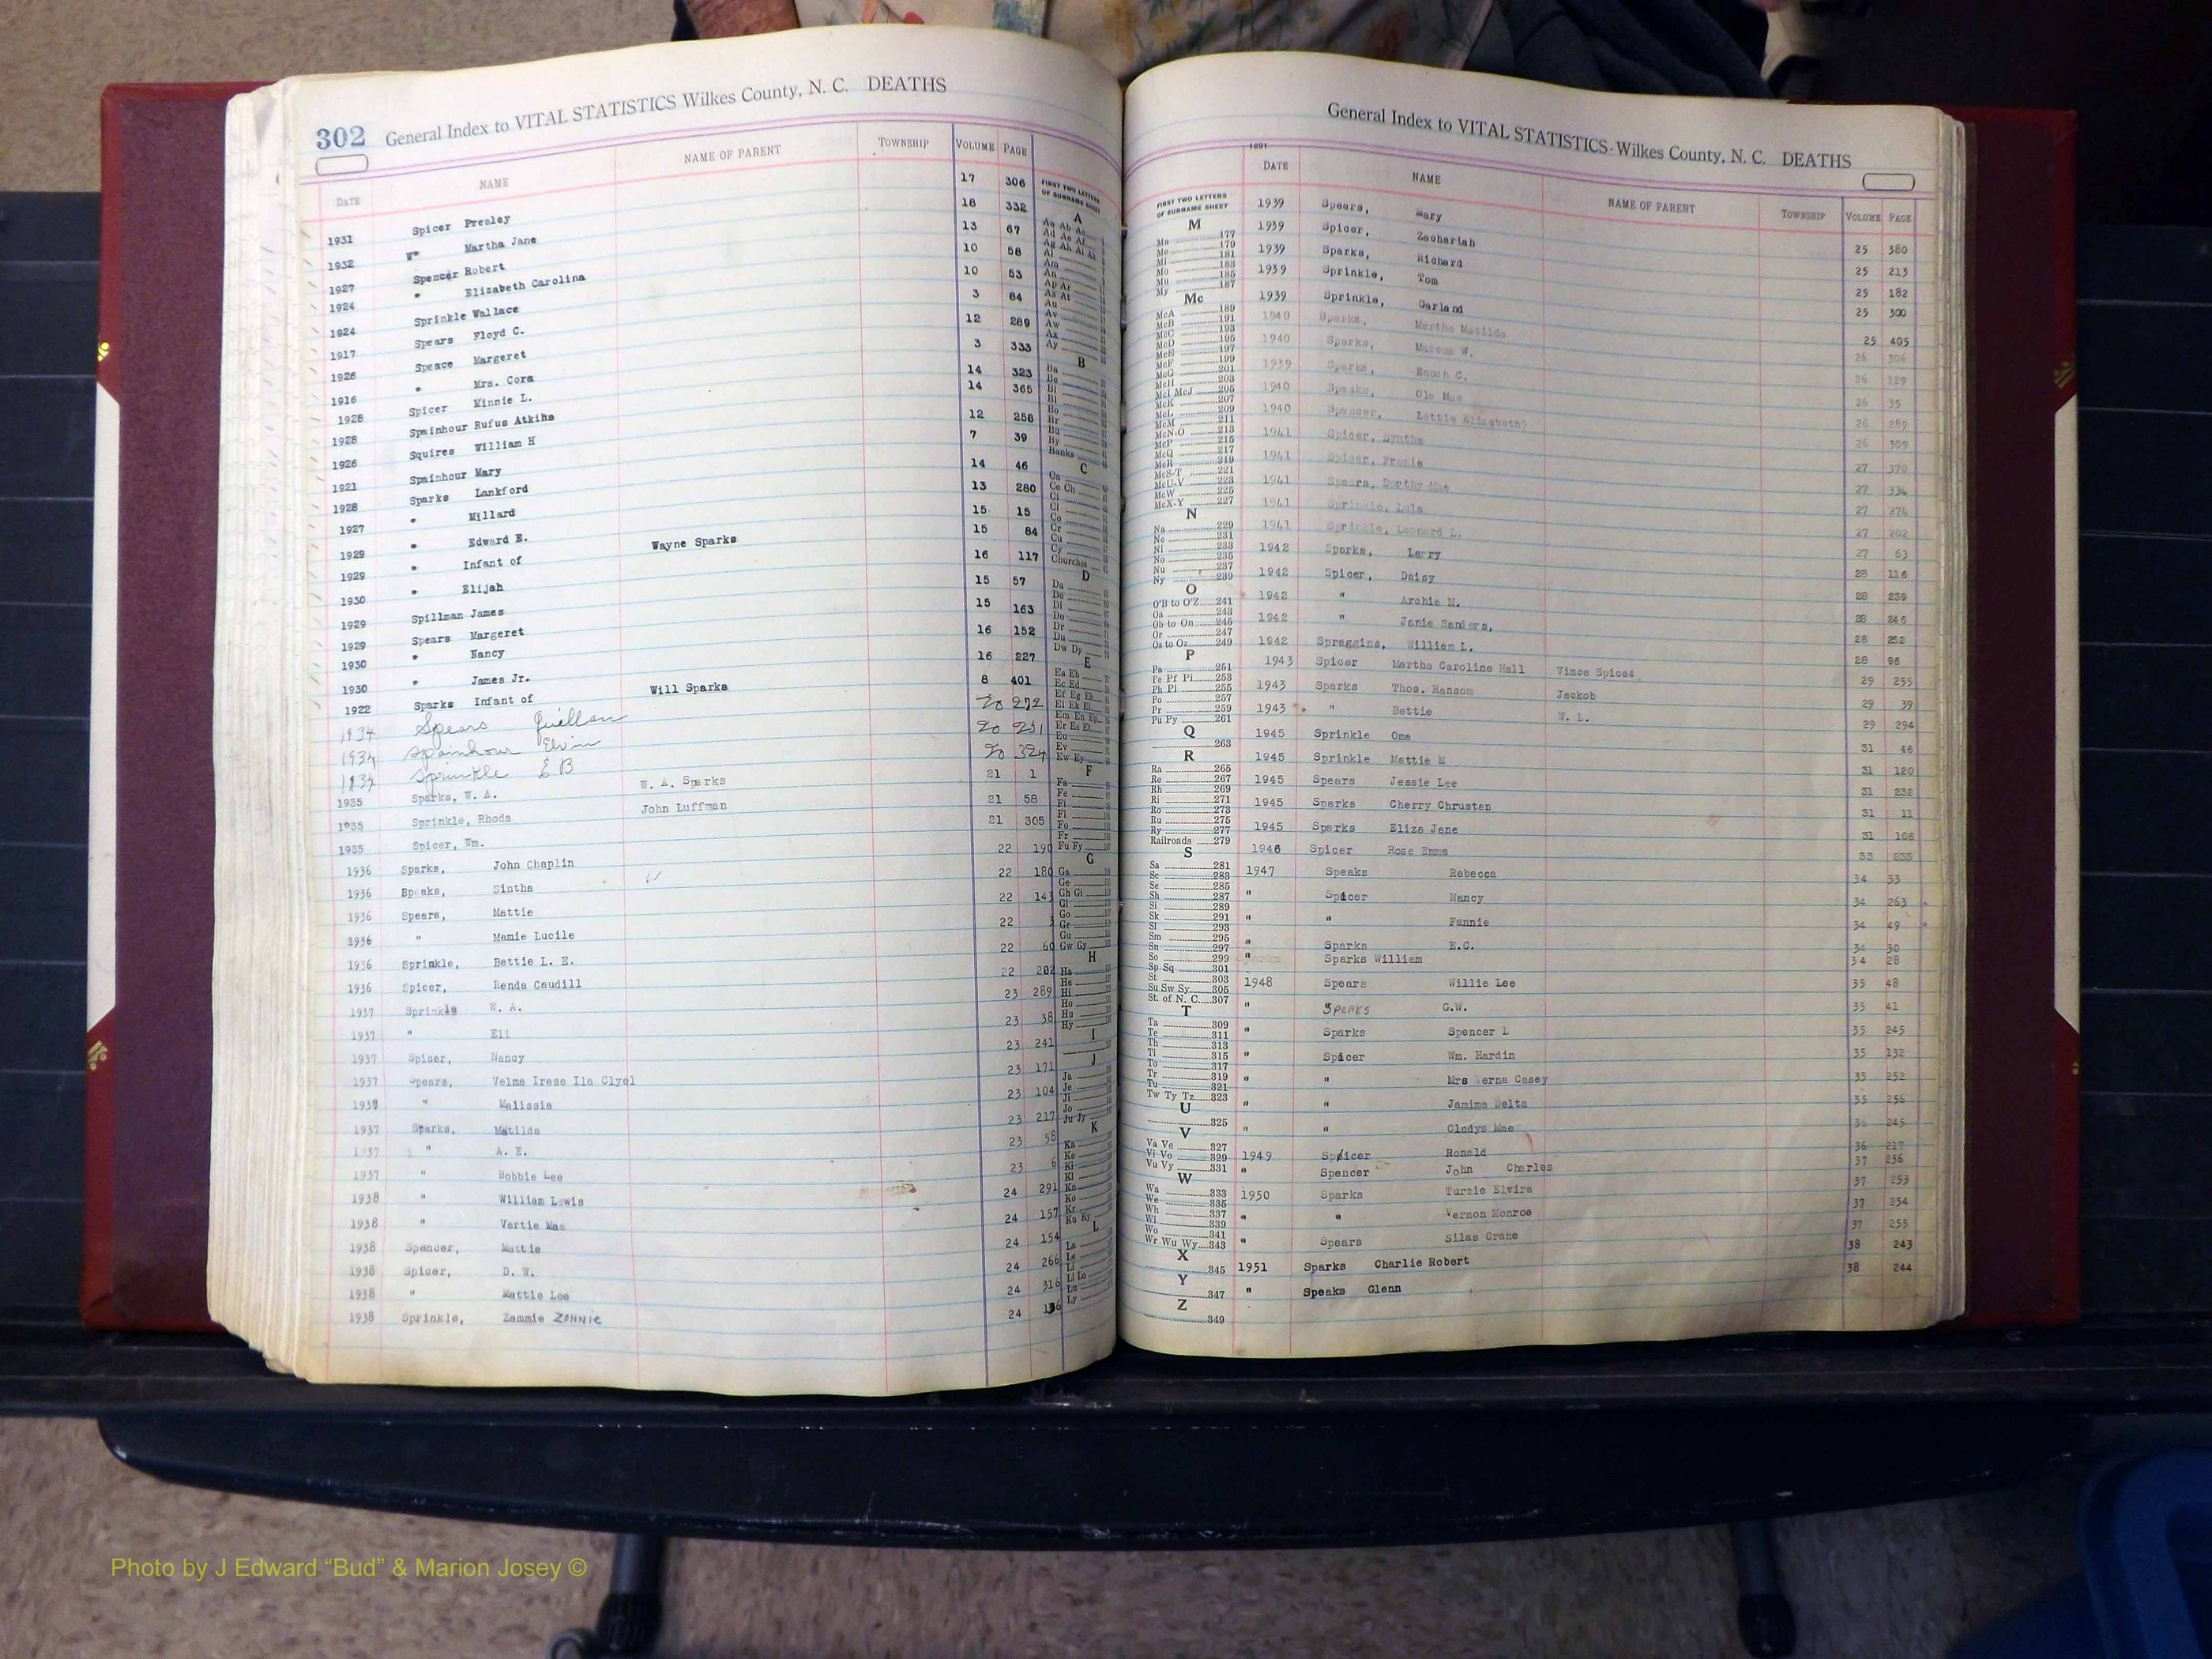 302 General Index to VITAL STATISTICS Wilkes County, N. C. DEATHS
DATE NAME NAME OF PARENT TOWNSHIP VOLUME PAGE
1931 Spicer Presley 17 306
1932 " Martha Jane 18 332
1927 Spencer Robert 13 67
1924 " Elizabeth Carolina 10 58
1924 Sprinkle Wallace 10 53
1917 Spears Floyd C. 3 84
1926 Speace Margeret 12 289
1916 " Mrs. Cora 3 333
1928 Spicer Minnie L. 14 323
1928 Spainhour Rufus Atkins 14 365
1926 Squires William H 12 258
1921 Spainhour Mary 7 39
1928 Sparks Lankford 14 46
1927 " Millard 13 280
1929 " Edward E. 15 15
1929 " Infant of Wayne Sparks 15 84
1930 " Elijah 16 117
1929 Spillman James 15 57
1929 Spears Margeret 15 163
1930 " Nancy 16 152
1930 " James Jr. 16 227
1922 Sparks Infant of Will Sparks 8 401
1934 Spears Quillan 20 272
1934 Spainhour Elvin 20 251
1934 Sprinkle E B 20 324
1935 Sparks, W. A. W. A. Sparks 21 1
1935 Sprinkle, Rhoda John Luffman 21 58
1935 Spicer, Wm. 21 305
1936 Sparks, John Chaplin 22 190
1936 Speaks, Sintha 22 180
1936 Spears, Mattie 22 143
1936 " Mamie Lucile 22
1936 Sprinkle, Bettie L. E. 22 60
1936 Spicer, Renda Caudill 22 202
1937 Sprinkle W. A. 23 289
1937 " Eli 23 38
1937 Spicer, Nancy 23 241
1937 Spears, Velma Irese Ila Clyel 23 171
1938 " Malissia 23 104
1937 Sparks, Matilda 23 217
1937 " A. E. 23 58
1937 " Bobbie Lee 23 6
1938 " William Lewis 24 291
1938 " Vertie Mae 24 157
1938 Spencer, Mattie 24 154
1938 Spicer, D. W. 24 266
1938 " Mattie Lee 24 316
1938 Sprinkle, Zammie ZONNIE 24 136
FIRST TWO LETTERS
OF SURNAME SHEET
A
Aa Ab Ac
Ad Ae Af
Ag Ah Ai Ak
Al
Am
An
Ap Ar
As At
Au
Av
Aw
Ax
Ay
B
Ba
Be
Bi
Bl
Bo
Br
Bu
By
Banks
C
Ca
Ce Ch
Ci
Cl
Co
Cr
Cu
Cy
Churches
D
Da
De
Di
Do
Dr
Du
Dw Dy
E
Ea Eb
Ec Ed
Ef Eg Eh
Ei Ek El
Em En Ep
Er Es Et
Eu
Ev
Ew Ey
F
Fa
Fe
Fi
Fl
Fo
Fr
Fu Fy
G
Ga
Ge
Gh Gi
Gl
Go
Gr
Gu
Gw Gy
H
Ha
He
Hi
Ho
Hu
Hy
I
J
Ja
Je
Ji
Jo
Ju Jy
K
Ka
Ke
Ki
Kl
Kn
Ko
Kr
Ku Ky
L
La
Le
Li
Ll Lo
Lu
Ly
General Index to VITAL STATISTICS-Wilkes County, N. C. DEATHS
1201
FIRST TWO LETTERS
OF SURNAME SHEET
M
Ma 177
Me 179
Mi 181
Mo 183
Mu 185
My 187
Mc
McA 189
McB 191
McC 193
McD 195
McE 197
McF 199
McG 201
McH 203
McI McJ 205
McK 207
McL 209
McM 211
McN-O 213
McP 215
McQ 217
McR 219
McS-T 221
McU-V 223
McW 225
McX-Y 227
N
Na 229
Ne 231
Ni 233
No 235
Nu 237
Ny 239
O
O'B to O'Z 241
Oa 243
Ob to On 245
Or 247
Os to Oz 249
P
Pa 251
Pe Pf Pi 253
Ph Pl 255
Po 257
Pr 259
Pu Py 261
Q
263
R
Ra 265
Re 267
Rh 269
Ri 271
Ro 273
Ru 275
Ry 277
Railroads 279
S
Sa 281
Sc 283
Se 285
Sh 287
Si 289
Sk 291
Sl 293
Sm 295
Sn 297
So 299
Sp Sq 301
St 303
Su Sw Sy 305
St. of N. C. 307
T
Ta 309
Te 311
Th 313
Ti 315
To 317
Tr 319
Tu 321
Tw Ty Tz 323
U
325
V
Va Ve 327
Vi Vo 329
Vu Vy 331
W
Wa 333
We 335
Wh 337
Wi 339
Wo 341
Wr Wu Wy 343
X
345
Y
347
Z
349
DATE NAME NAME OF PARENT TOWNSHIP VOLUME PAGE
1939 Spears, Mary 25 380
1939 Spicer, Zachariah 25 213
1939 Sparks, Richard 25 182
1939 Sprinkle, Tom 25 300
1939 Sprinkle, Garland 25 405
1940 Sparks, Martha Matilda 26 306
1940 Sparks, Marcus W. 26 189
1939 Sparks, Enoch C. 26 35
1940 Speaks, Ola Mae 26 289
1940 Spencer, Lettie Elizabeth? 26 309
1941 Spicer, Syntha 27 370
1941 Spicer, Fronie 27 334
1941 Spears, Dorthy Mae 27 274
1941 Sprinkle, Lula 27 202
1941 Sprinkle, Leonard L. 27 63
1942 Sparks, Larry 28 116
1942 Spicer, Daisy 28 239
1942 " Archie M. 28 246
1942 " Janie Sanders, 28 252
1942 Spraggins, William L. 28 96
1943 Spicer Martha Caroline Hall Vince Spiced 29 255
1943 Sparks Thos. Ransom Jackob 29 39
1943 " Bettie W. L. 29 294
1945 Sprinkle Oma 31 46
1945 Sprinkle Mattie M 31 120
1945 Spears Jessie Lee 31 232
1945 Sparks Cherry Chrusten 31 11
1945 Sparks Eliza Jane 31 106
1946 Spicer Rose Emma 33 235
1947 Speaks Rebecca 34 53
" Spicer Nancy 34 263
" " Fannie 34 49
" Sparks E.C. 34 30
" Sparks William 34 28
1948 Spears Willie Lee 35 48
" Speaks G.W. 35 41
" Sparks Spencer L 35 245
" Spicer Wm. Hardin 35 132
" " Mrs Verna Casey 35 252
" " Jamima Delta 35 256
" " Gladys Mae 36 245
1949 Spicer Ronald 36 217
" Spencer John Charles 37 256
1950 Sparks Turzie Elvira 37 253
" " Vernon Monroe 37 254
" Spears Silas Crane 37 255
1951 Sparks Charlie Robert 38 243
" Speaks Glenn 38 244
Photo by J Edward “Bud” & Marion Josey ©